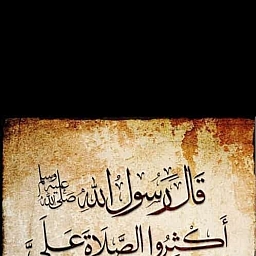 قَالَ رَسُولُ اللهِ صلى الله عليه وسلم
أَكْثِرُوا الصَّلَاةَ عَلَيَّ